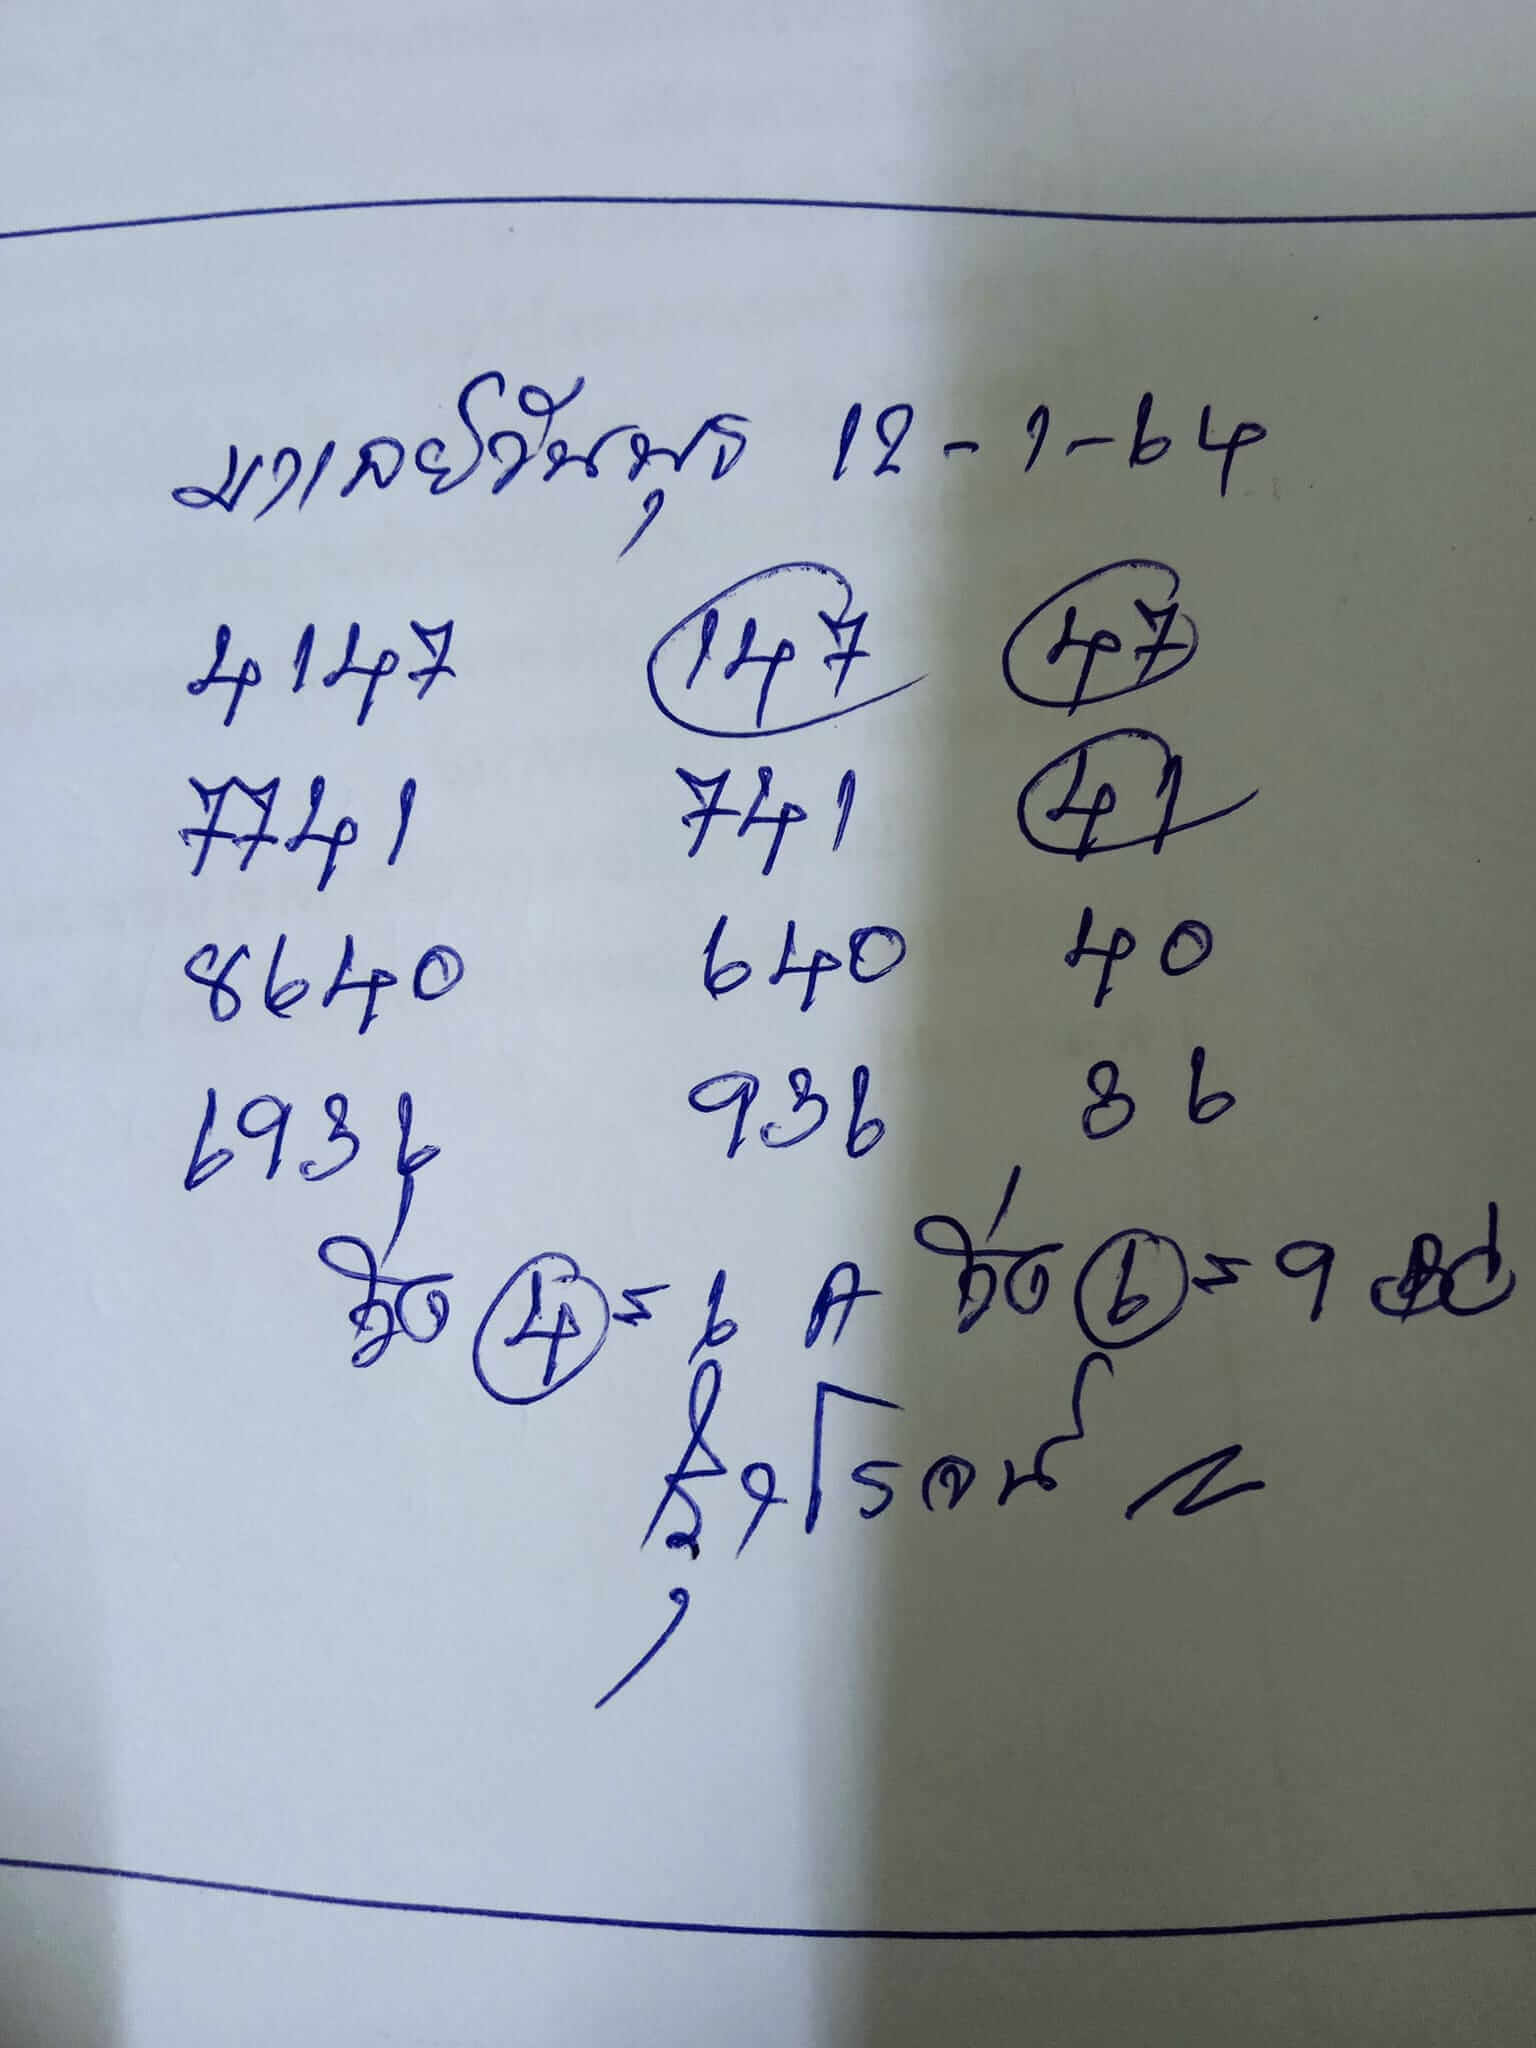 มาเลย์วันพุธ 12-1-64
4147 147 47
7741 741 41
8640 640 40
6936 936 36
4 = 6 A 6 = 9
โรจน์